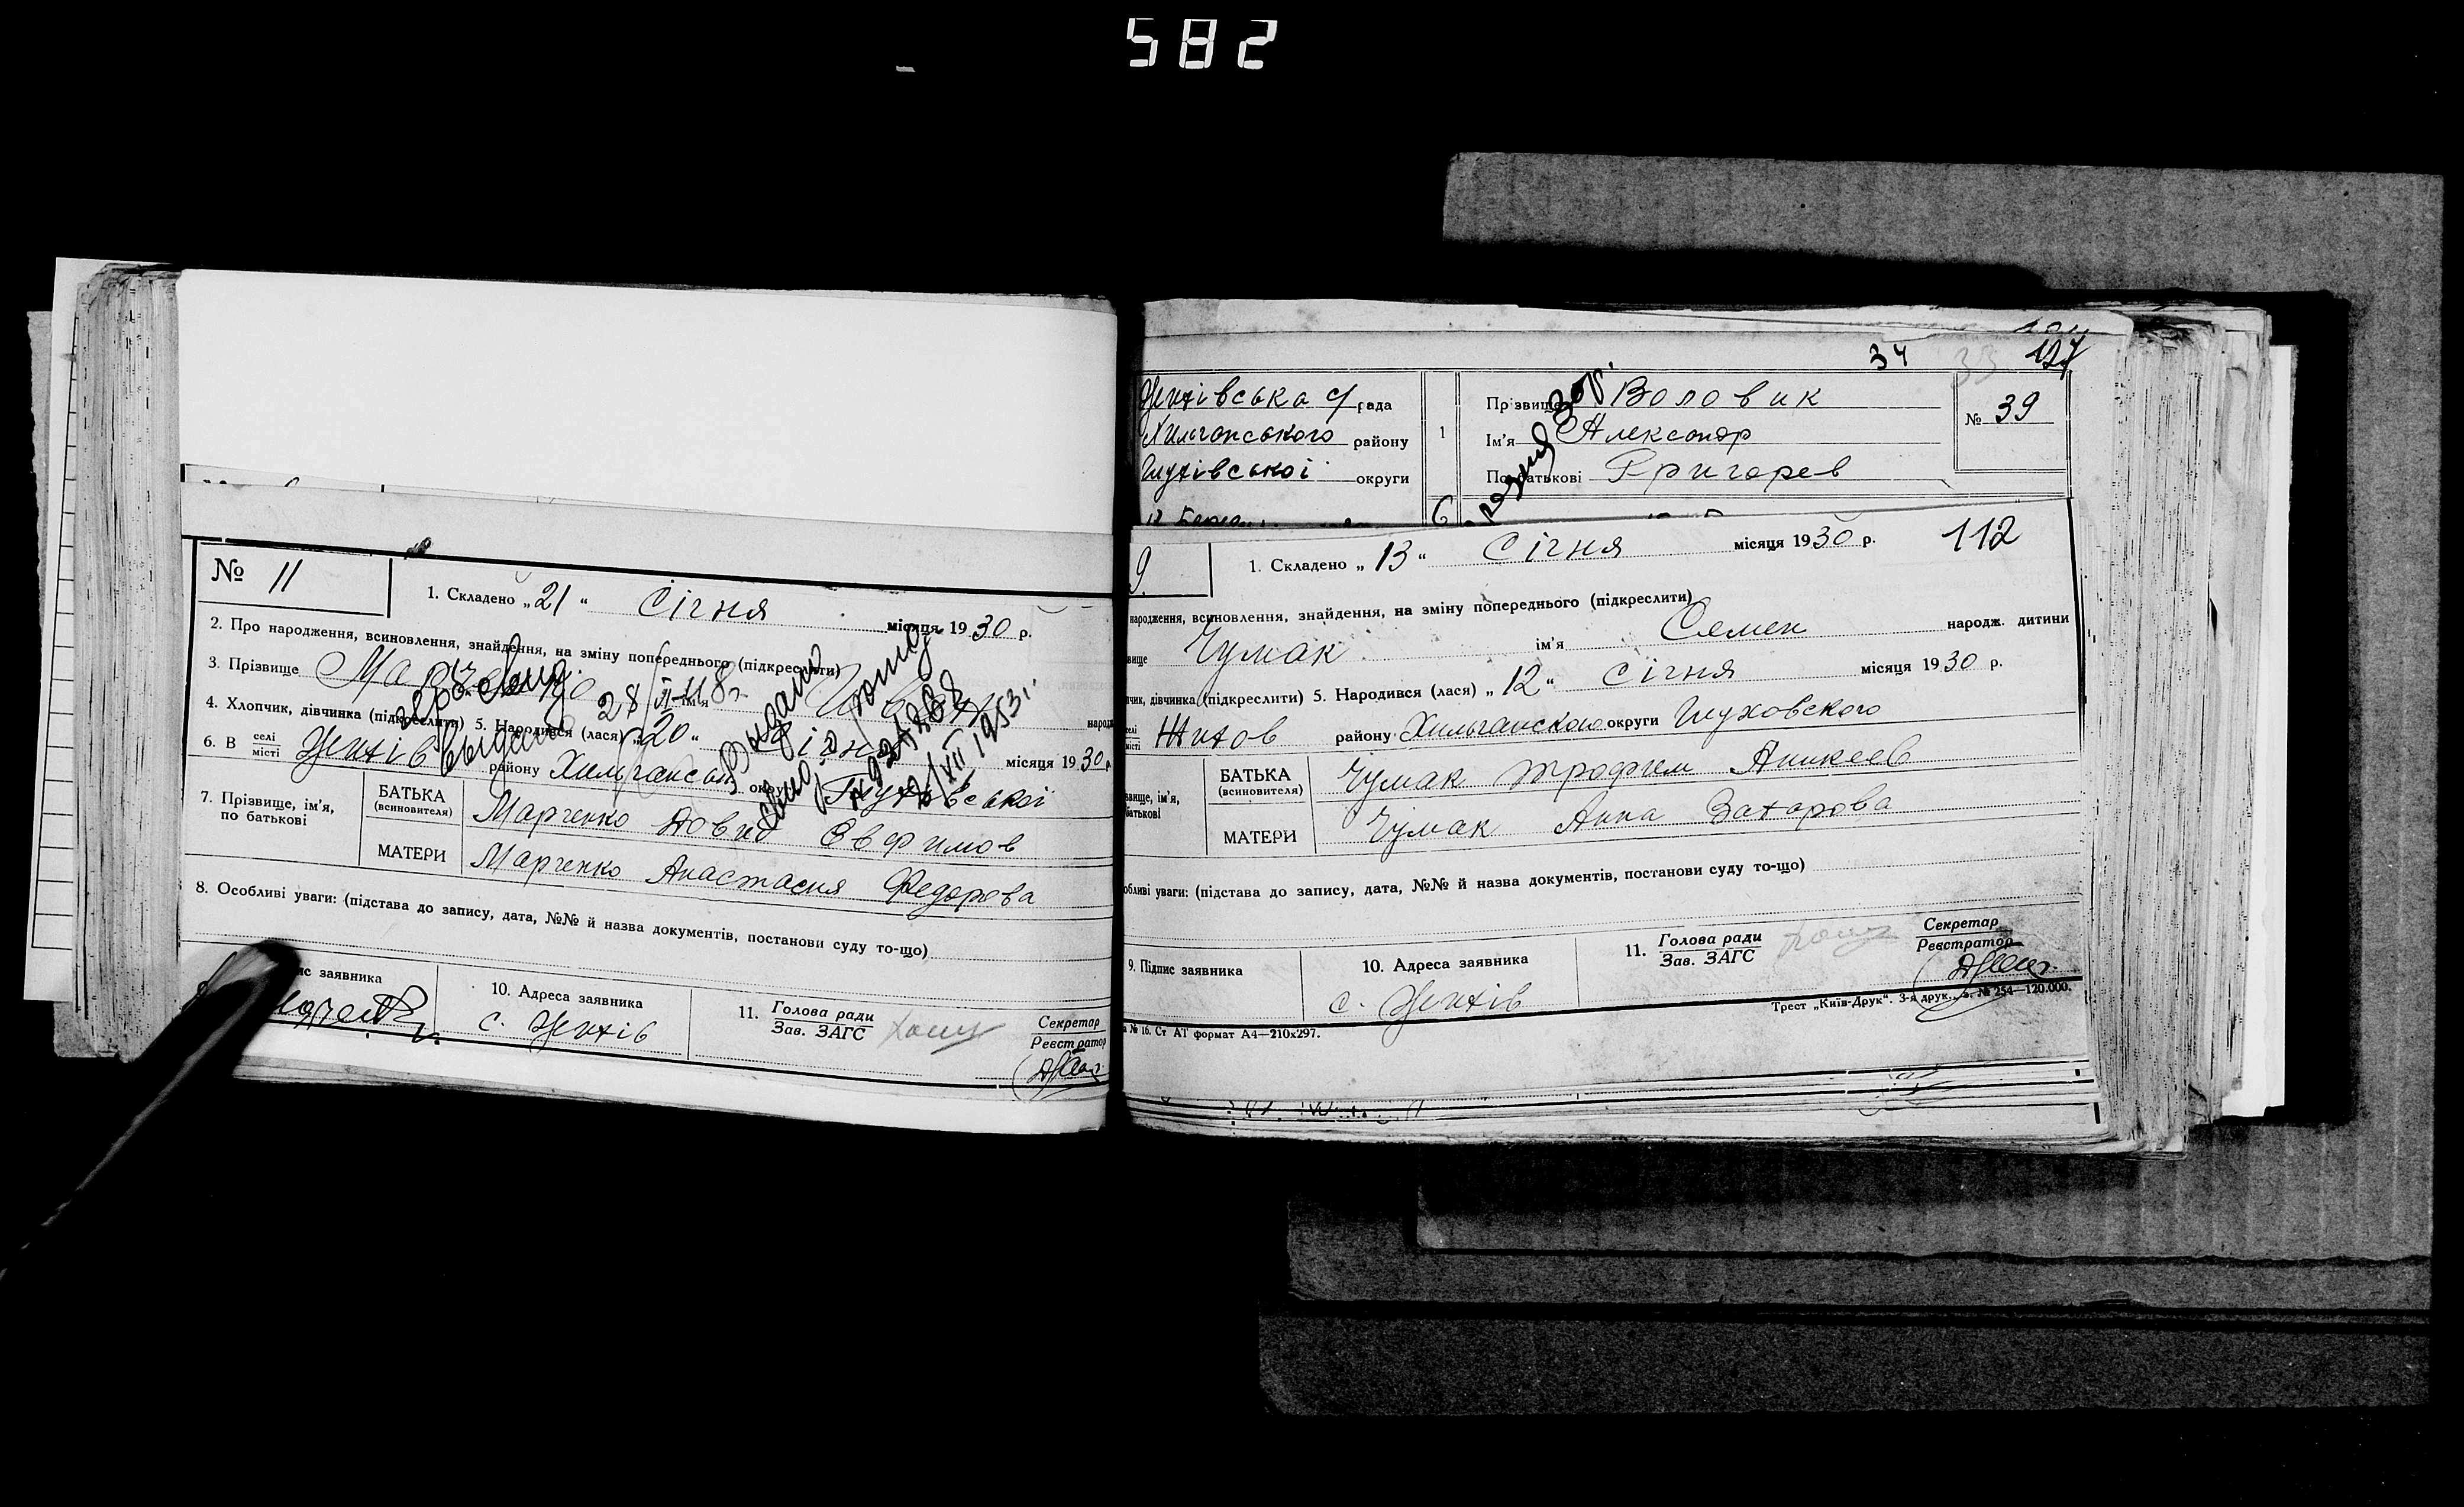 582
№ 11
1. Складено „21“ Січня місяця 1930 р.
2. Про народження, всиновлення, знайдення, на зміну попереднього (підкреслити)
3. Прізвище Марченко ім'я
4. Хлопчик, дівчинка (підкреслити) 5. Народився (лася) „20“ Січня місяця 1930 р
6. В селі місті району округи Глухівської
7. Прізвище, ім'я, по батькові
БАТЬКА (всиновителя) Марченко Довид Євфимов
МАТЕРИ Марченко Анастасия Федорова
8. Особливі уваги: (підстава до запису, дата, №№ й назва документів, постанови суду то-що)
заявника
10. Адреса заявника
с.
11. Голова ради
Зав. ЗАГС
Секретар
Реєстратор
Видано
VII 1953 г.
34 33 127
рада
району
Глухівської округи
1
Прізвище Воловик
Ім'я Александр
По батькові Григорев
№ 39
9.
1. Складено „13“ Січня місяця 1930 р. 112
народження, всиновлення, знайдення, на зміну попереднього (підкреслити)
вище Чумак ім'я Семен народж. дитини
чик, дівчинка (підкреслити) 5. Народився (лася) „12“ січня місяця 1930 р.
селі місті району округи Глуховского
звище, ім'я,
батькові
БАТЬКА (всиновителя) Чумак Трофим Аникеев
МАТЕРИ Чумак Анна Захарова
обливі уваги: (підстава до запису, дата, №№ й назва документів, постанови суду то-що)
9. Підпис заявника
10. Адреса заявника
с.
11. Голова ради
Зав. ЗАГС
Секретар
Реєстратор
а № 16. Ст АТ формат А4—210х297.
Трест „Київ-Друк“. 3-я друк. № 254—120.000.